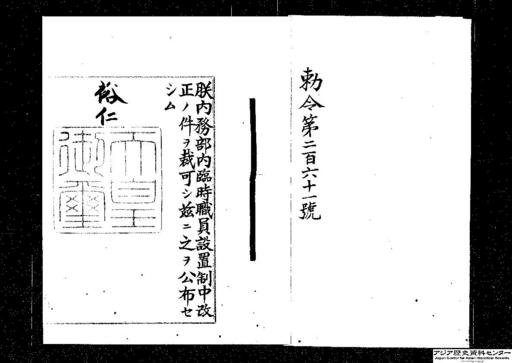 勅令第二百六十一號
朕内務部内臨時職員設置制中改
正ノ件ヲ裁可シ茲ニ之ヲ公布セ
シム
裕仁
天皇
御璽
アジア歴史資料センター
Japan Center for Asian Historical Records